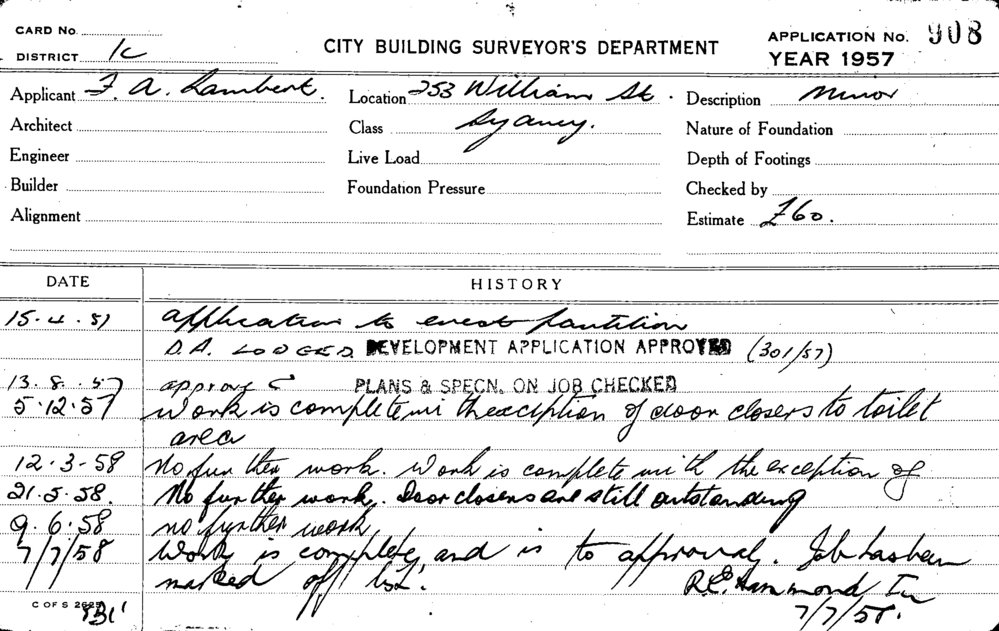 CARD No.
DISTRICT 1c
CITY BUILDING SURVEYOR'S DEPARTMENT
APPLICATION No. 908
YEAR 1957
Applicant F. A. Lambert. Location 253 William St. Description Minor
Architect Class Sydney. Nature of Foundation
Engineer Live Load Depth of Footings
Builder Foundation Pressure Checked by
Alignment Estimate £60.
DATE HISTORY
15.4.57 application to erect partition
D.A. LODGED DEVELOPMENT APPLICATION APPROVED (301/57)
13.8.57 approve PLANS & SPECN. ON JOB CHECKED
5.12.57 Work is complete with exception of door closers to toilet
area
12.3-58 No further work. Work is complete with the exception of
21.5.58. No further work. Door closers are still outstanding
9.6.58 no further work
7/7/58 Work is complete, and is to approval. Job has been
marked off R.E. Hammond
7/7/58.
C OF S